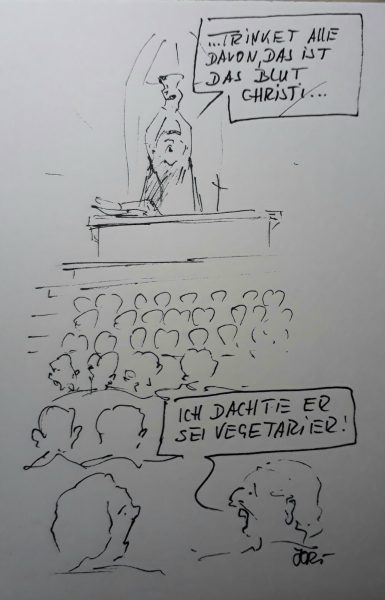 ...TRINKET ALLE
DAVON, DAS IST
DAS BLUT
CHRISTI...
ICH DACHTE ER
SEI VEGETARIER!